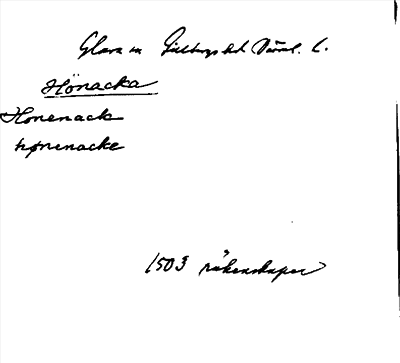 Glava sn Gillbergs hd Värml. L.
Hönacka
Honenack
hønenacke
1503 räkenskaper